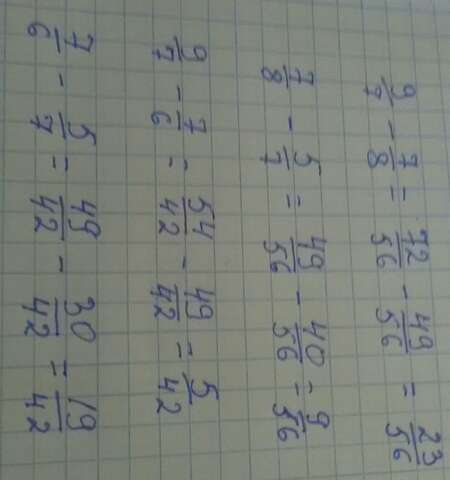 9/7 - 7/8 = 72/56 - 49/56 = 23/56
7/8 - 5/7 = 49/56 - 40/56 = 9/56
9/7 - 7/6 = 54/42 - 49/42 = 5/42
7/6 - 5/7 = 49/42 - 30/42 = 19/42